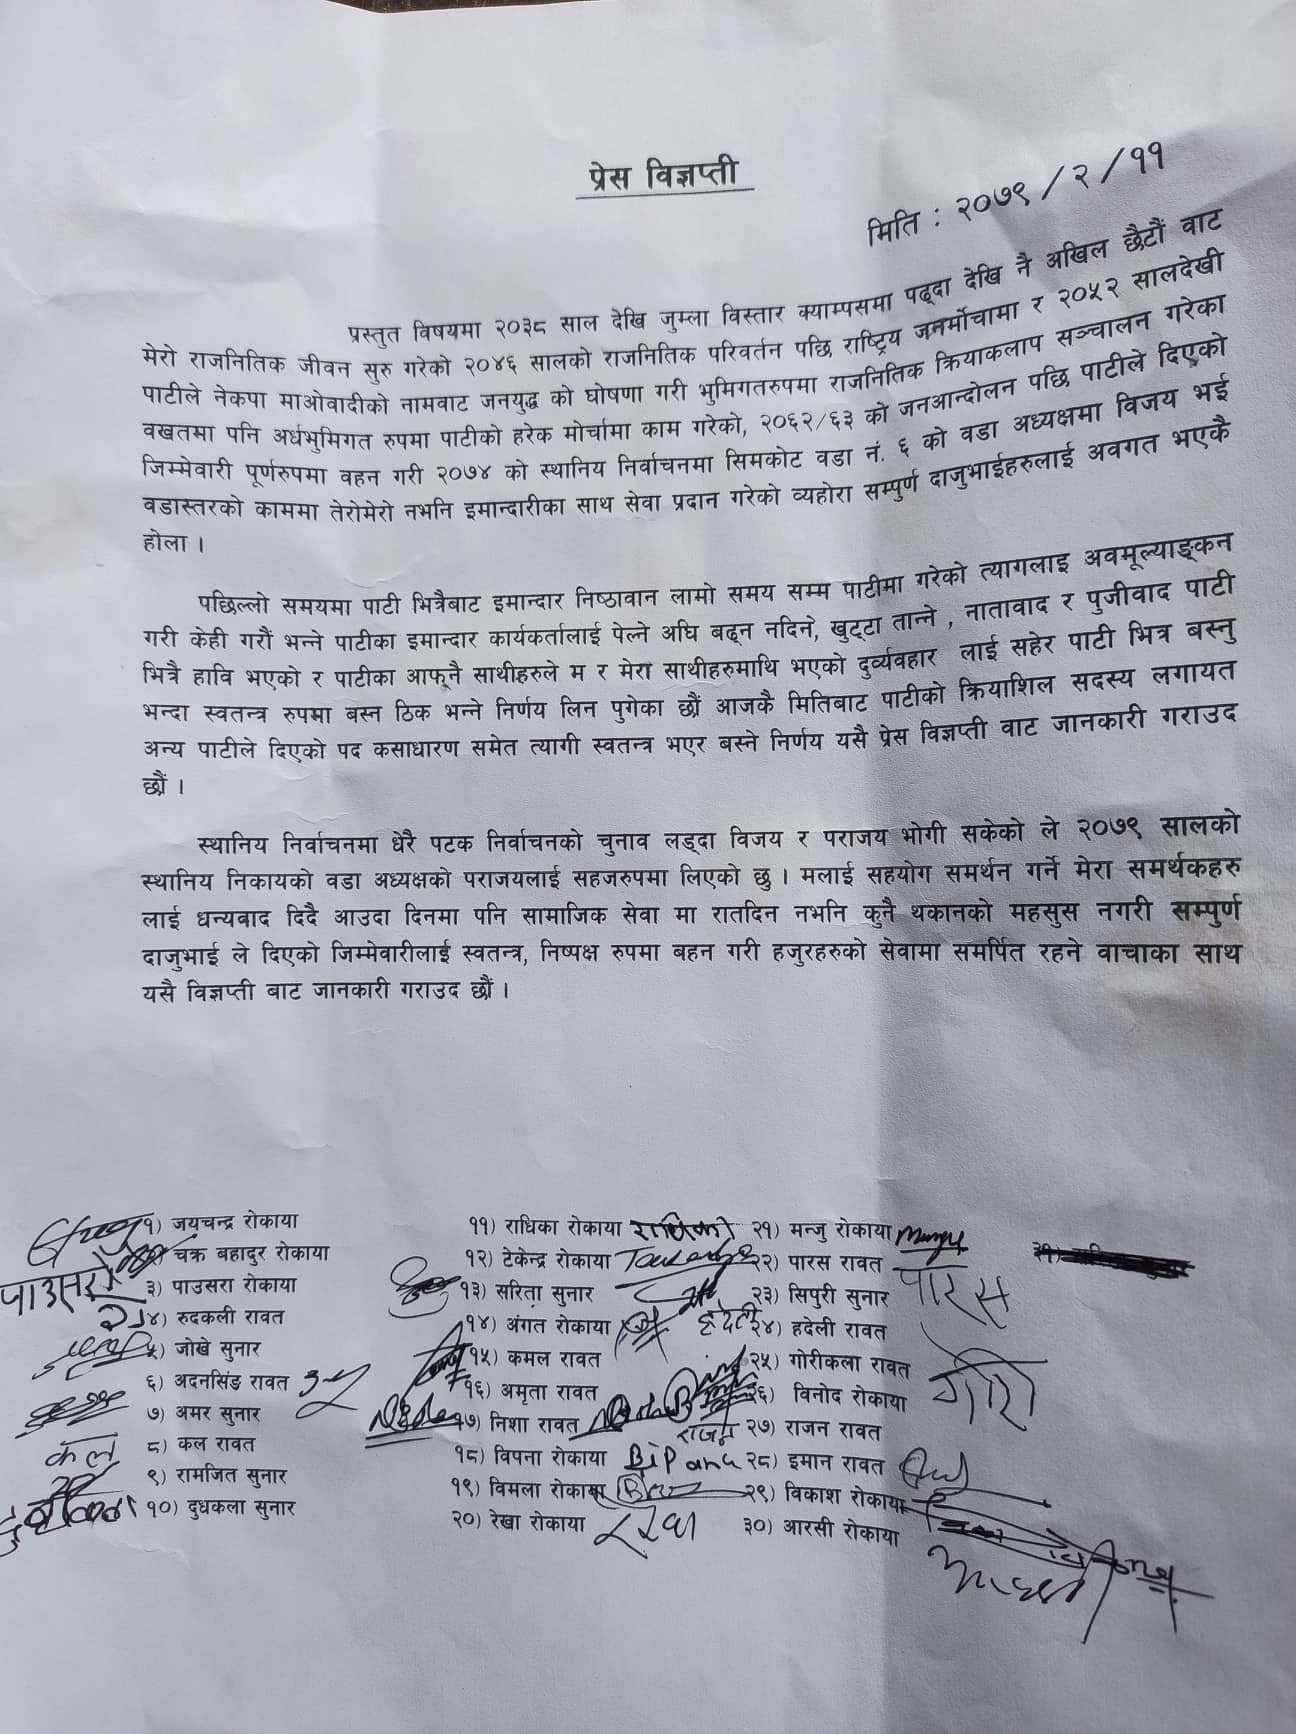 प्रेस विज्ञप्ती
मिति : २०७९/२/११
प्रस्तुत विषयमा २०३८ साल देखि जुम्ला विस्तार क्याम्पसमा पढ्दा देखि नै अखिल छैटौं वाट
मेरो राजनितिक जीवन सुरु गरेको २०४६ सालको राजनितिक परिवर्तन पछि राष्ट्रिय जनर्मोचामा र २०५२ सालदेखी
पाटीले नेकपा माओवादीको नामवाट जनयुद्ध को घोषणा गरी भुमिगतरुपमा राजनितिक क्रियाकलाप सञ्चालन गरेका
वखतमा पनि अर्धभुमिगत रुपमा पाटीको हरेक मोर्चामा काम गरेको, २०६२/६३ को जनआन्दोलन पछि पाटीले दिएको
जिम्मेवारी पूर्णरुपमा वहन गरी २०७४ को स्थानिय निर्वाचनमा सिमकोट वडा नं. ६ को वडा अध्यक्षमा विजय भई
वडास्तरको काममा तेरोमेरो नभनि इमान्दारीका साथ सेवा प्रदान गरेको व्यहोरा सम्पुर्ण दाजुभाईहरुलाई अवगत भएकै
होला ।
पछिल्लो समयमा पाटी भित्रैबाट इमान्दार निष्ठावान लामो समय सम्म पाटीमा गरेको त्यागलाइ अवमूल्याङ्कन
गरी केही गरौं भन्ने पाटीका इमान्दार कार्यकर्तालाई पेल्ने अघि बढ्न नदिने, खुट्टा तान्ने , नातावाद र पुजीवाद पाटी
भित्रै हावि भएको र पाटीका आफ्नै साथीहरुले म र मेरा साथीहरुमाथि भएको दुर्व्यवहार लाई सहेर पाटी भित्र बस्नु
भन्दा स्वतन्त्र रुपमा बस्न ठिक भन्ने निर्णय लिन पुगेका छौं आजकै मितिबाट पाटीको क्रियाशिल सदस्य लगायत
अन्य पाटीले दिएको पद कसाधारण समेत त्यागी स्वतन्त्र भएर बस्ने निर्णय यसै प्रेस विज्ञप्ती वाट जानकारी गराउद
छौं ।
स्थानिय निर्वाचनमा धेरै पटक निर्वाचनको चुनाव लड्दा विजय र पराजय भोगी सकेको ले २०७९ सालको
स्थानिय निकायको वडा अध्यक्षको पराजयलाई सहजरुपमा लिएको छु । मलाई सहयोग समर्थन गर्ने मेरा समर्थकहरु
लाई धन्यवाद दिदै आउदा दिनमा पनि सामाजिक सेवा मा रातदिन नभनि कुनै थकानको महसुस नगरी सम्पुर्ण
दाजुभाई ले दिएको जिम्मेवारीलाई स्वतन्त्र, निष्पक्ष रुपमा बहन गरी हजुरहरुको सेवामा समर्पित रहने वाचाका साथ
यसै विज्ञप्ती बाट जानकारी गराउद छौं ।
१) जयचन्द्र रोकाया
चक्र बहादुर रोकाया
पाउसरा ३) पाउसरा रोकाया
४) रुदकली रावत
५) जोखे सुनार
६) अदनसिंङ रावत
७) अमर सुनार
कल ८) कल रावत
९) रामजित सुनार
१०) दुधकला सुनार
११) राधिका रोकाया राधिका
१२) टेकेन्द्र रोकाया
१३) सरिता सुनार
१४) अंगत रोकाया
१५) कमल रावत
१६) अमृता रावत
१७) निशा रावत
१८) विपना रोकाया Bipana
१९) विमला रोकाया
२०) रेखा रोकाया रेखा
२१) मन्जु रोकाया
२२) पारस रावत पारस
२३) सिपुरी सुनार
हदेली २४) हदेली रावत
२५) गोरीकला रावत गोरी
२६) विनोद रोकाया
राजन २७) राजन रावत
२८) इमान रावत
२९) विकाश रोकाया
३०) आरसी रोकाया